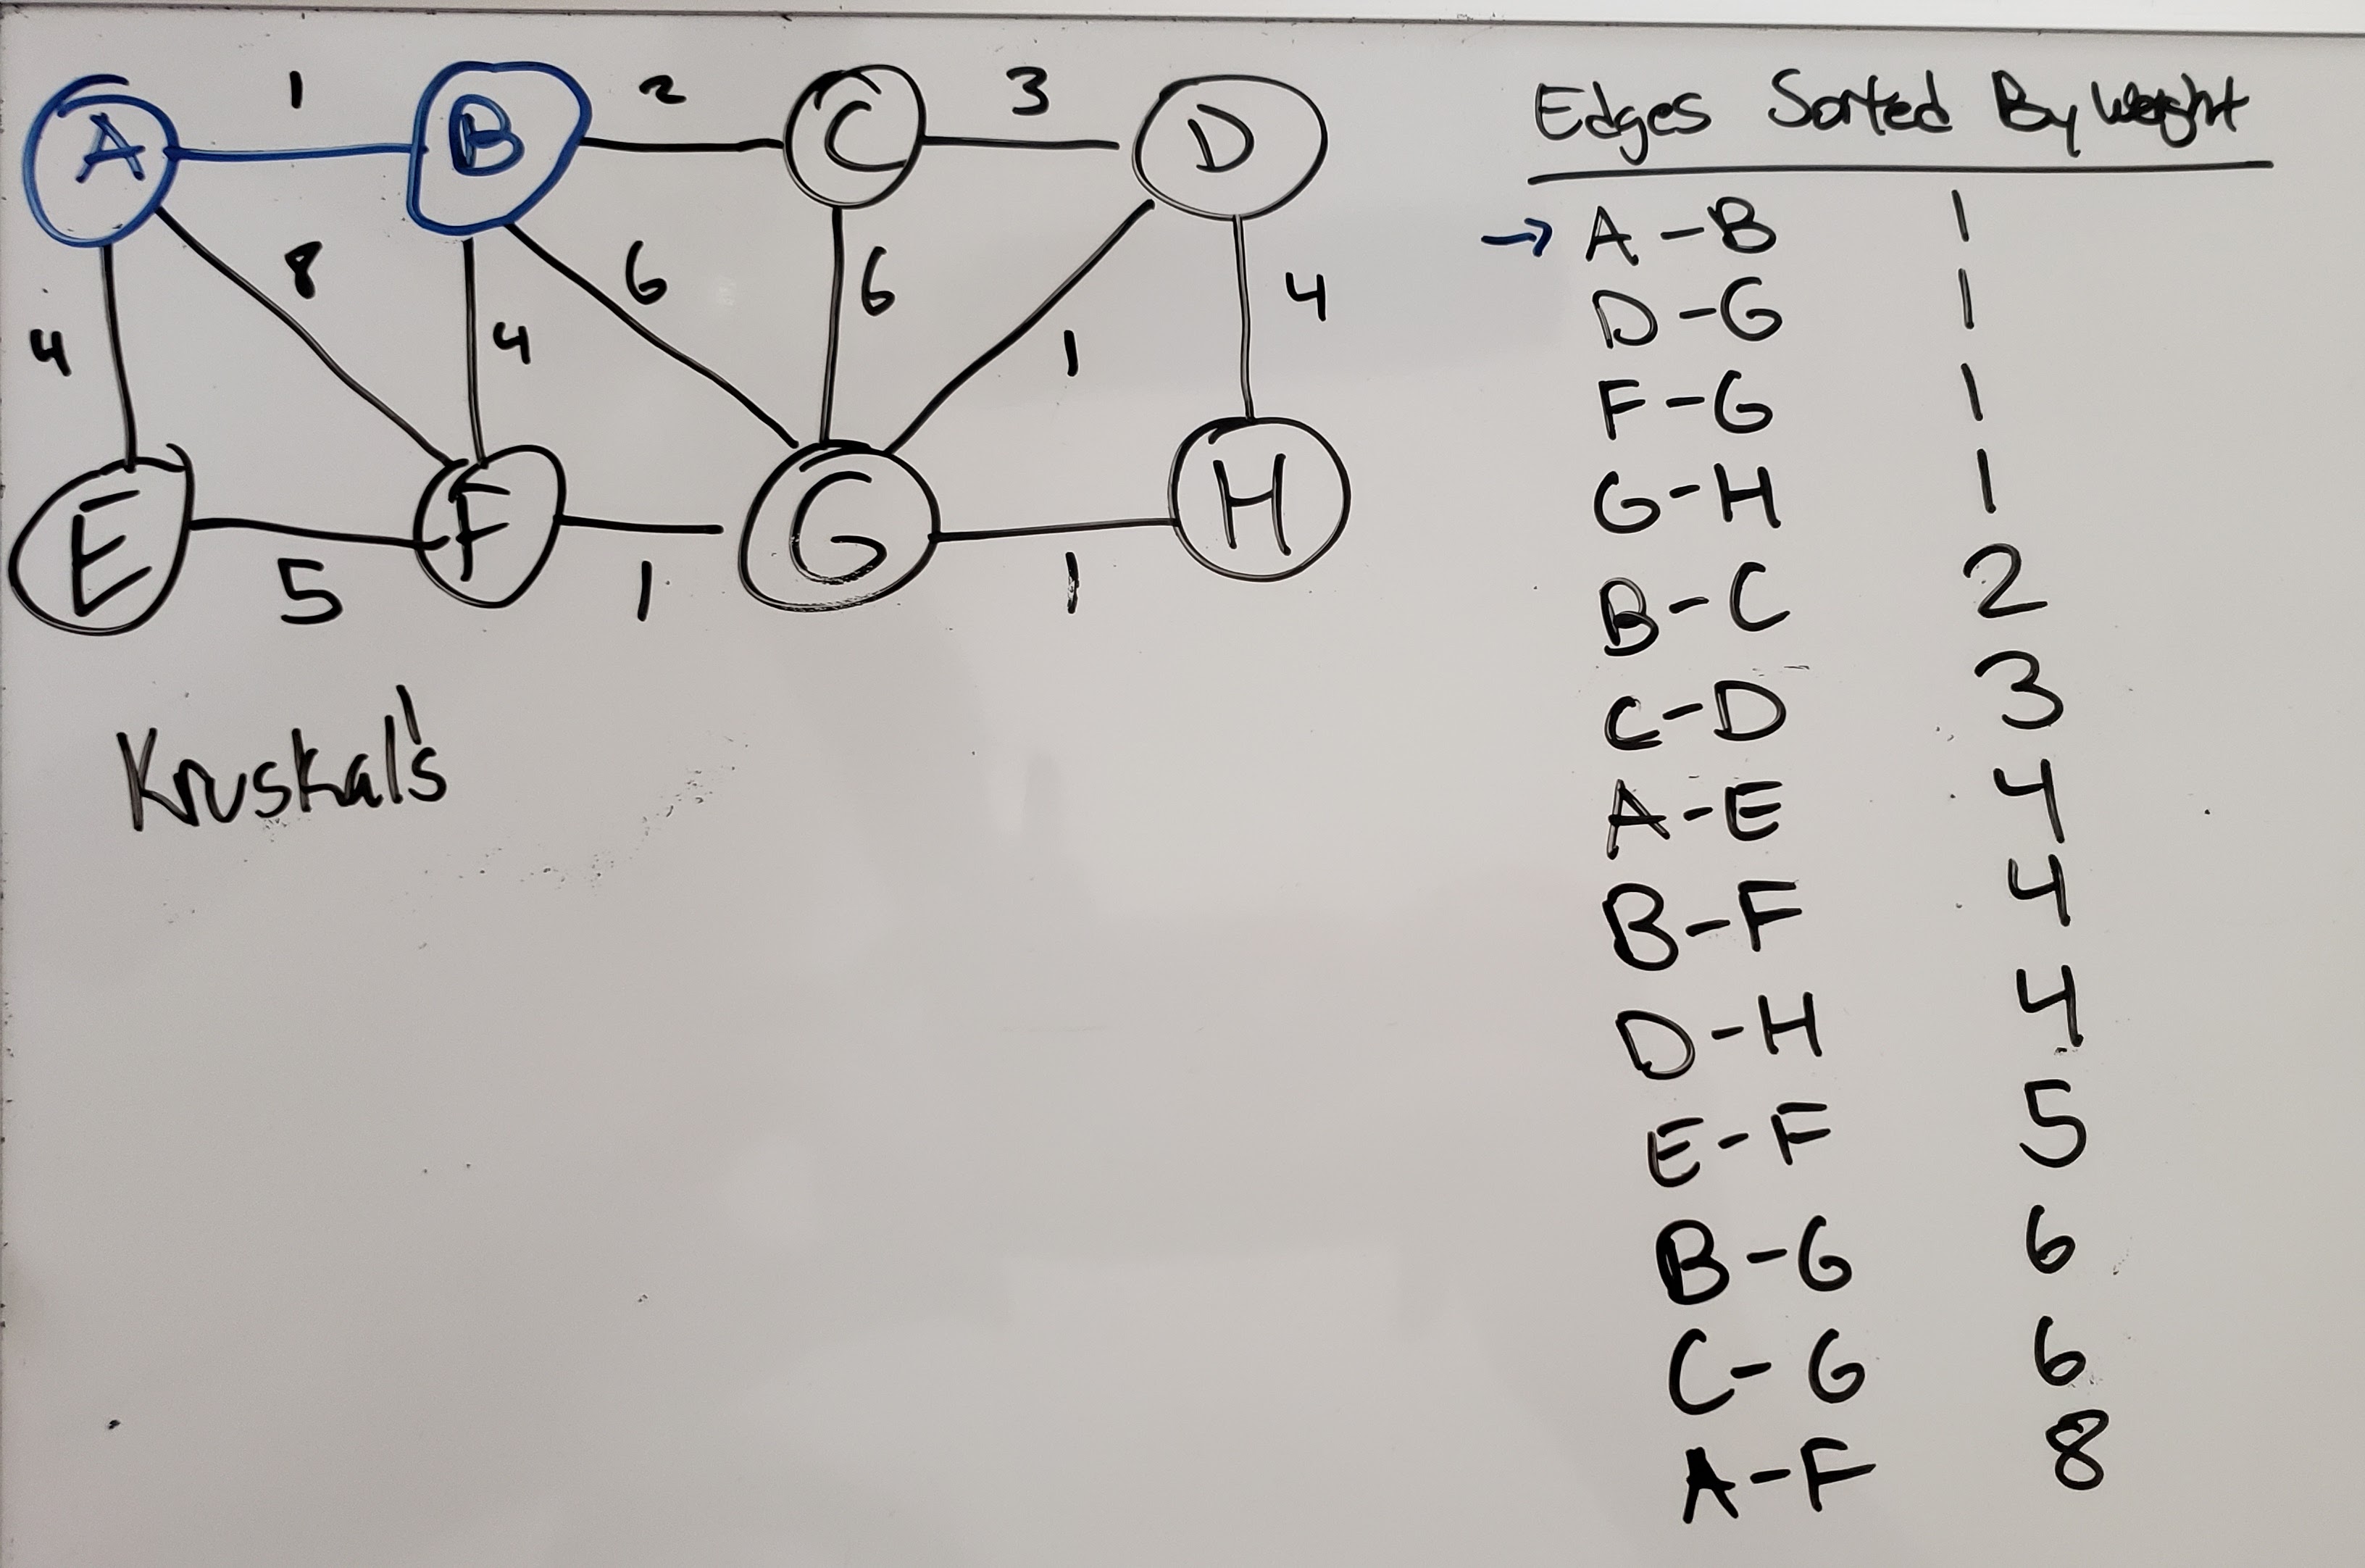 1 2 3
A B C D
8 6 6 4
4 4 1
E F G H
5 1 1
Kruskal's
Edges Sorted By Weight
→ A - B 1
D - G 1
F - G 1
G - H 1
B - C 2
C - D 3
A - E 4
B - F 4
D - H 4
E - F 5
B - G 6
C - G 6
A - F 8